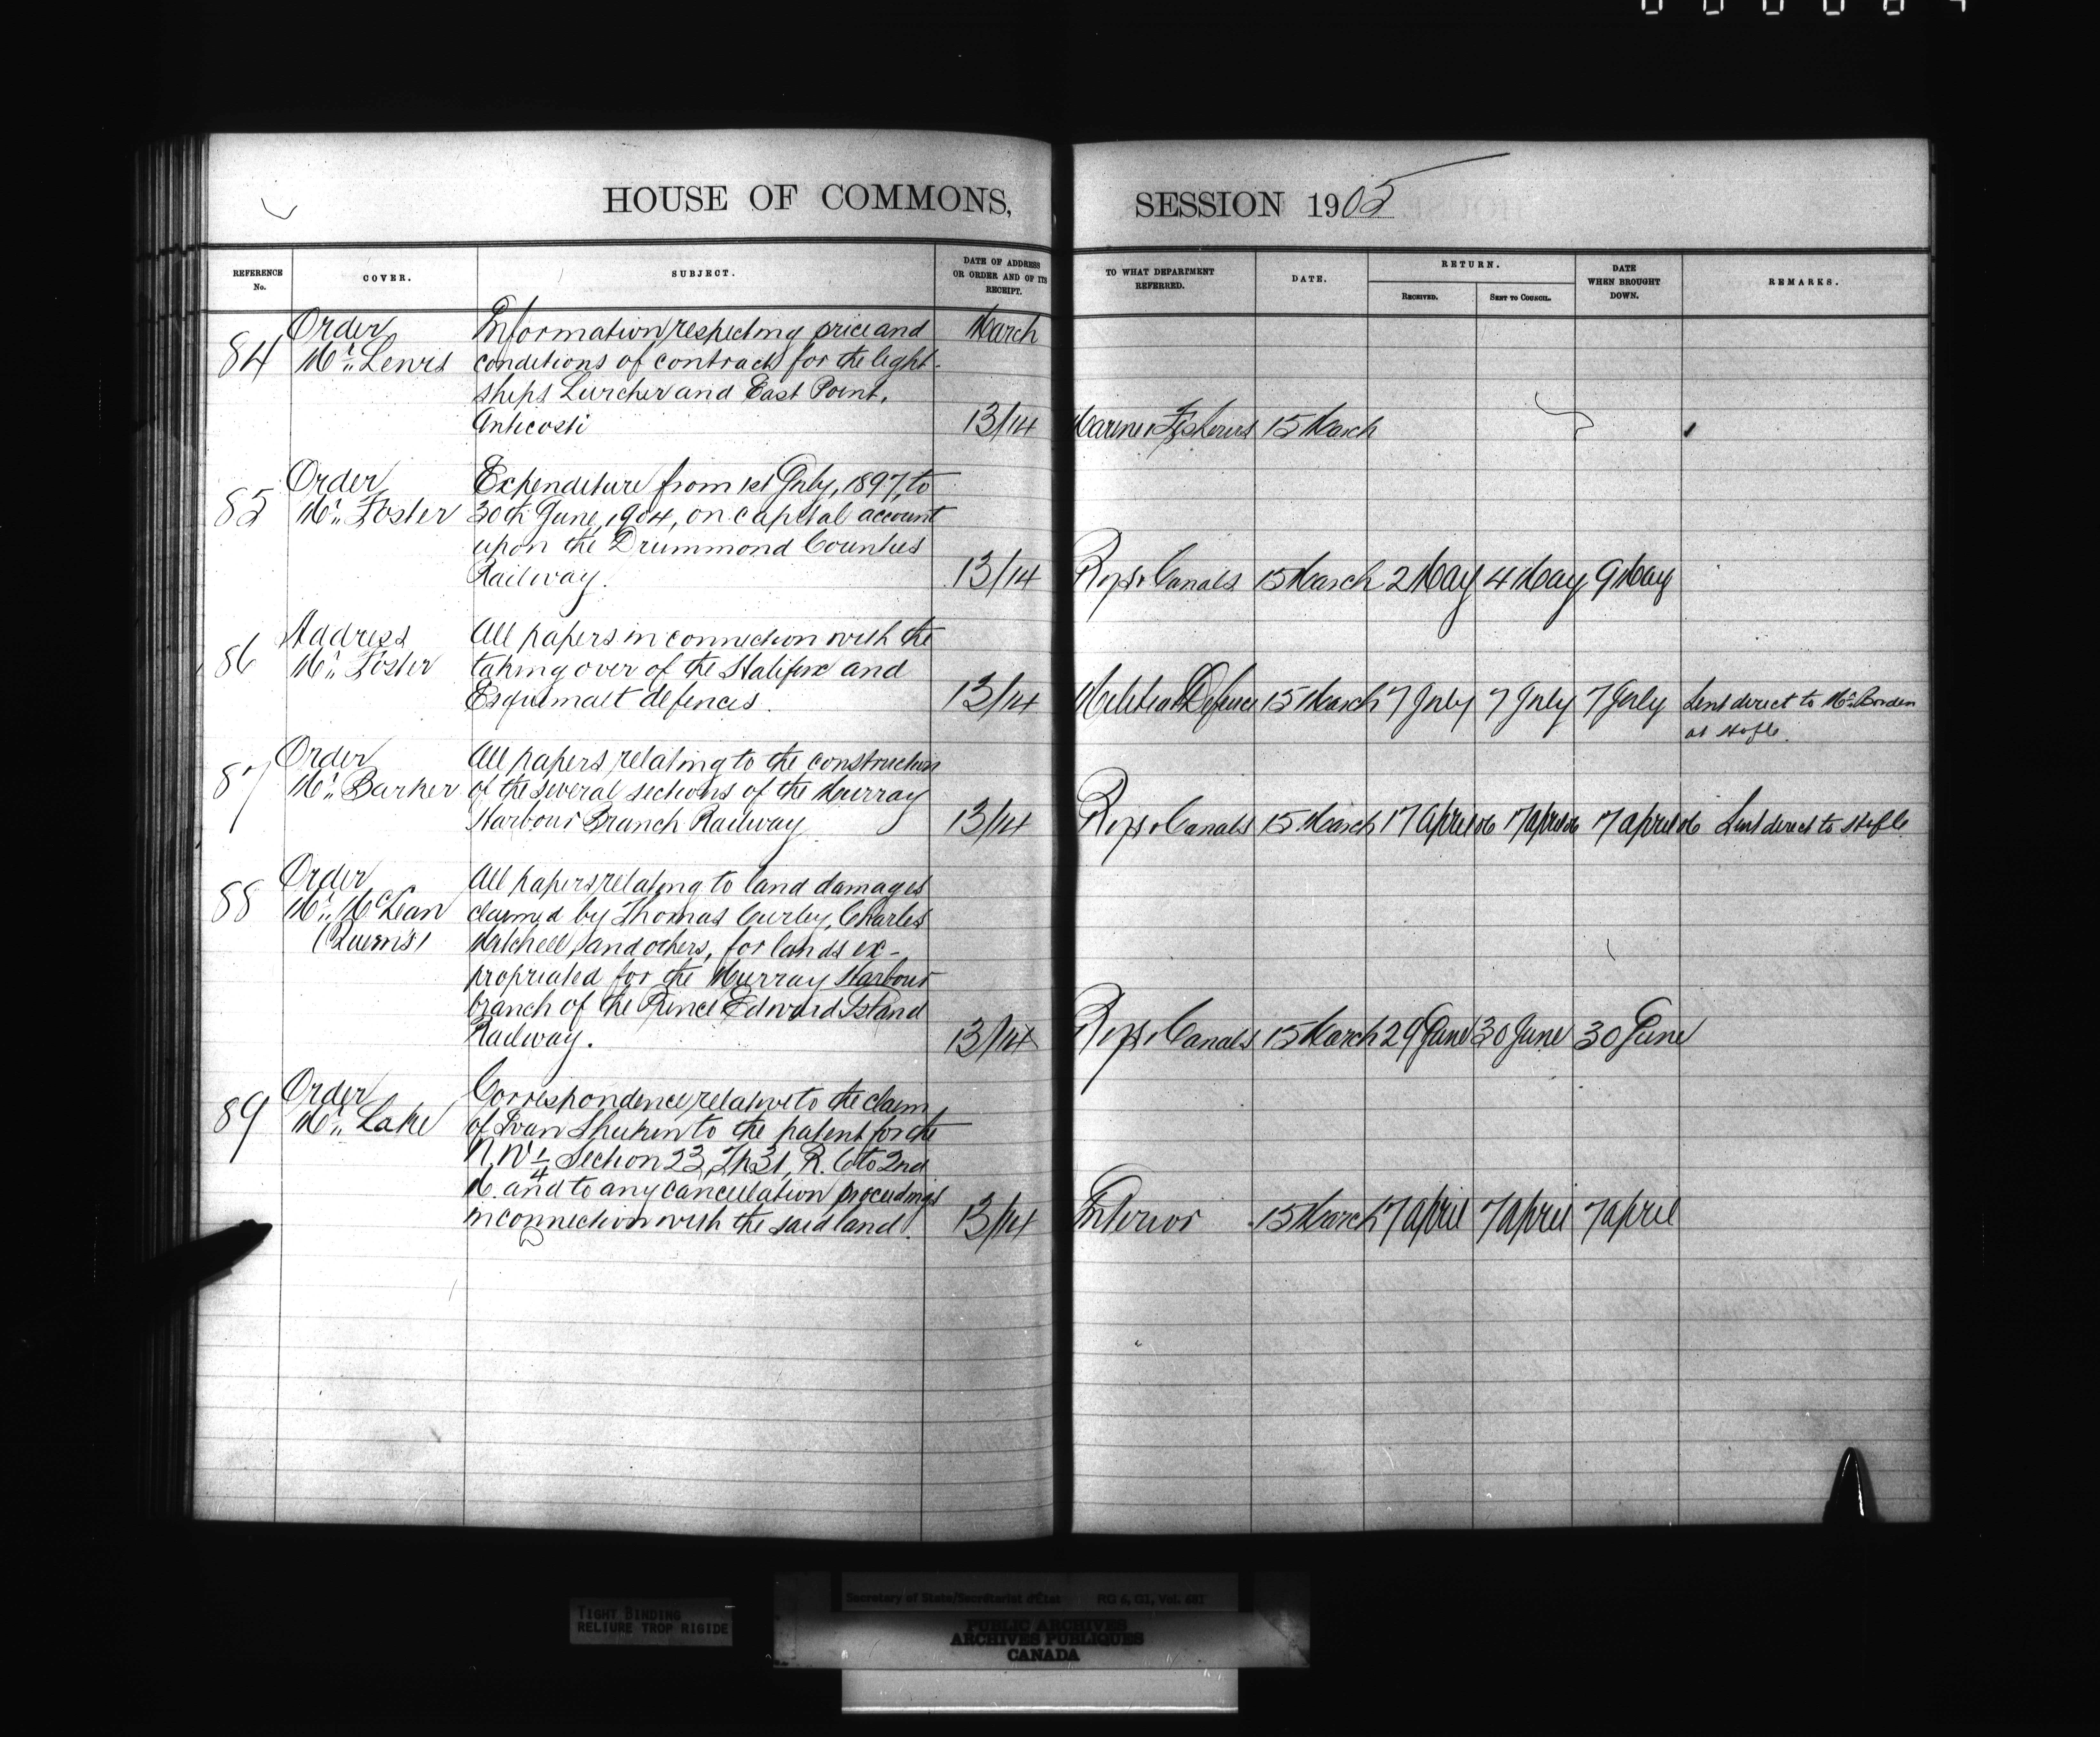 HOUSE OF COMMONS,
REFERENCE No.
COVER.
SUBJECT.
DATE OF ADDRESS OR ORDER AND OF ITS RECEIPT.
84
Order
Mr. Lewis
Information respecting price and
conditions of contract for the light-
ships Lurcher and East Point,
Anticosti
March
13/14
85
Order
Mr. Foster
Expenditure from 1st July, 1897, to
30th June, 1904, on capital account
upon the Drummond Counties
Railway.
13/14
86
Address
Mr. Foster
All papers in connection with the
taking over of the Halifax and
Esquimalt defences.
13/14
87
Order
Mr. Barker
All papers relating to the construction
of the several sections of the Murray
Harbour Branch Railway
13/14
88
Order
Mr. McLean
(Queen's)
All papers relating to land damages
claimed by Thomas Curley, Charles
Mitchell, and others, for lands ex-
propriated for the Murray Harbour
branch of the Prince Edward Island
Railway.
13/14
89
Order
Mr. Lake
Correspondence relative to the claim
of Ivan to the patent for the
N.W 1/4 Section 23, Tp 31, R. 6 to 2nd
M. and to any cancellation proceedings
in connection with the said land.
13/14
SESSION 1905
TO WHAT DEPARTMENT REFERRED.
DATE.
RETURN.
RECEIVED.
SENT TO COUNCIL.
DATE WHEN BROUGHT DOWN.
REMARKS.
Marine & Fisheries 15 March
Rys & Canals 15 March 2 May 4 May 9 May
Militia & Defence 15 March 7 July 7 July 7 July Sent direct to Mr. Borden
at HofC.
Rys & Canals 15 March 17 April 06 17 April 06 17 April 06 Sent direct to HofC
Rys & Canals 15 March 29 June 30 June 30 June
Interior 15 March 17 April 17 April 17 April
TIGHT BINDING
RELIURE TROP RIGIDE
Secretary of State/Secrétariat d'État RG 6, G1, Vol. 681
PUBLIC ARCHIVES
ARCHIVES PUBLIQUES
CANADA